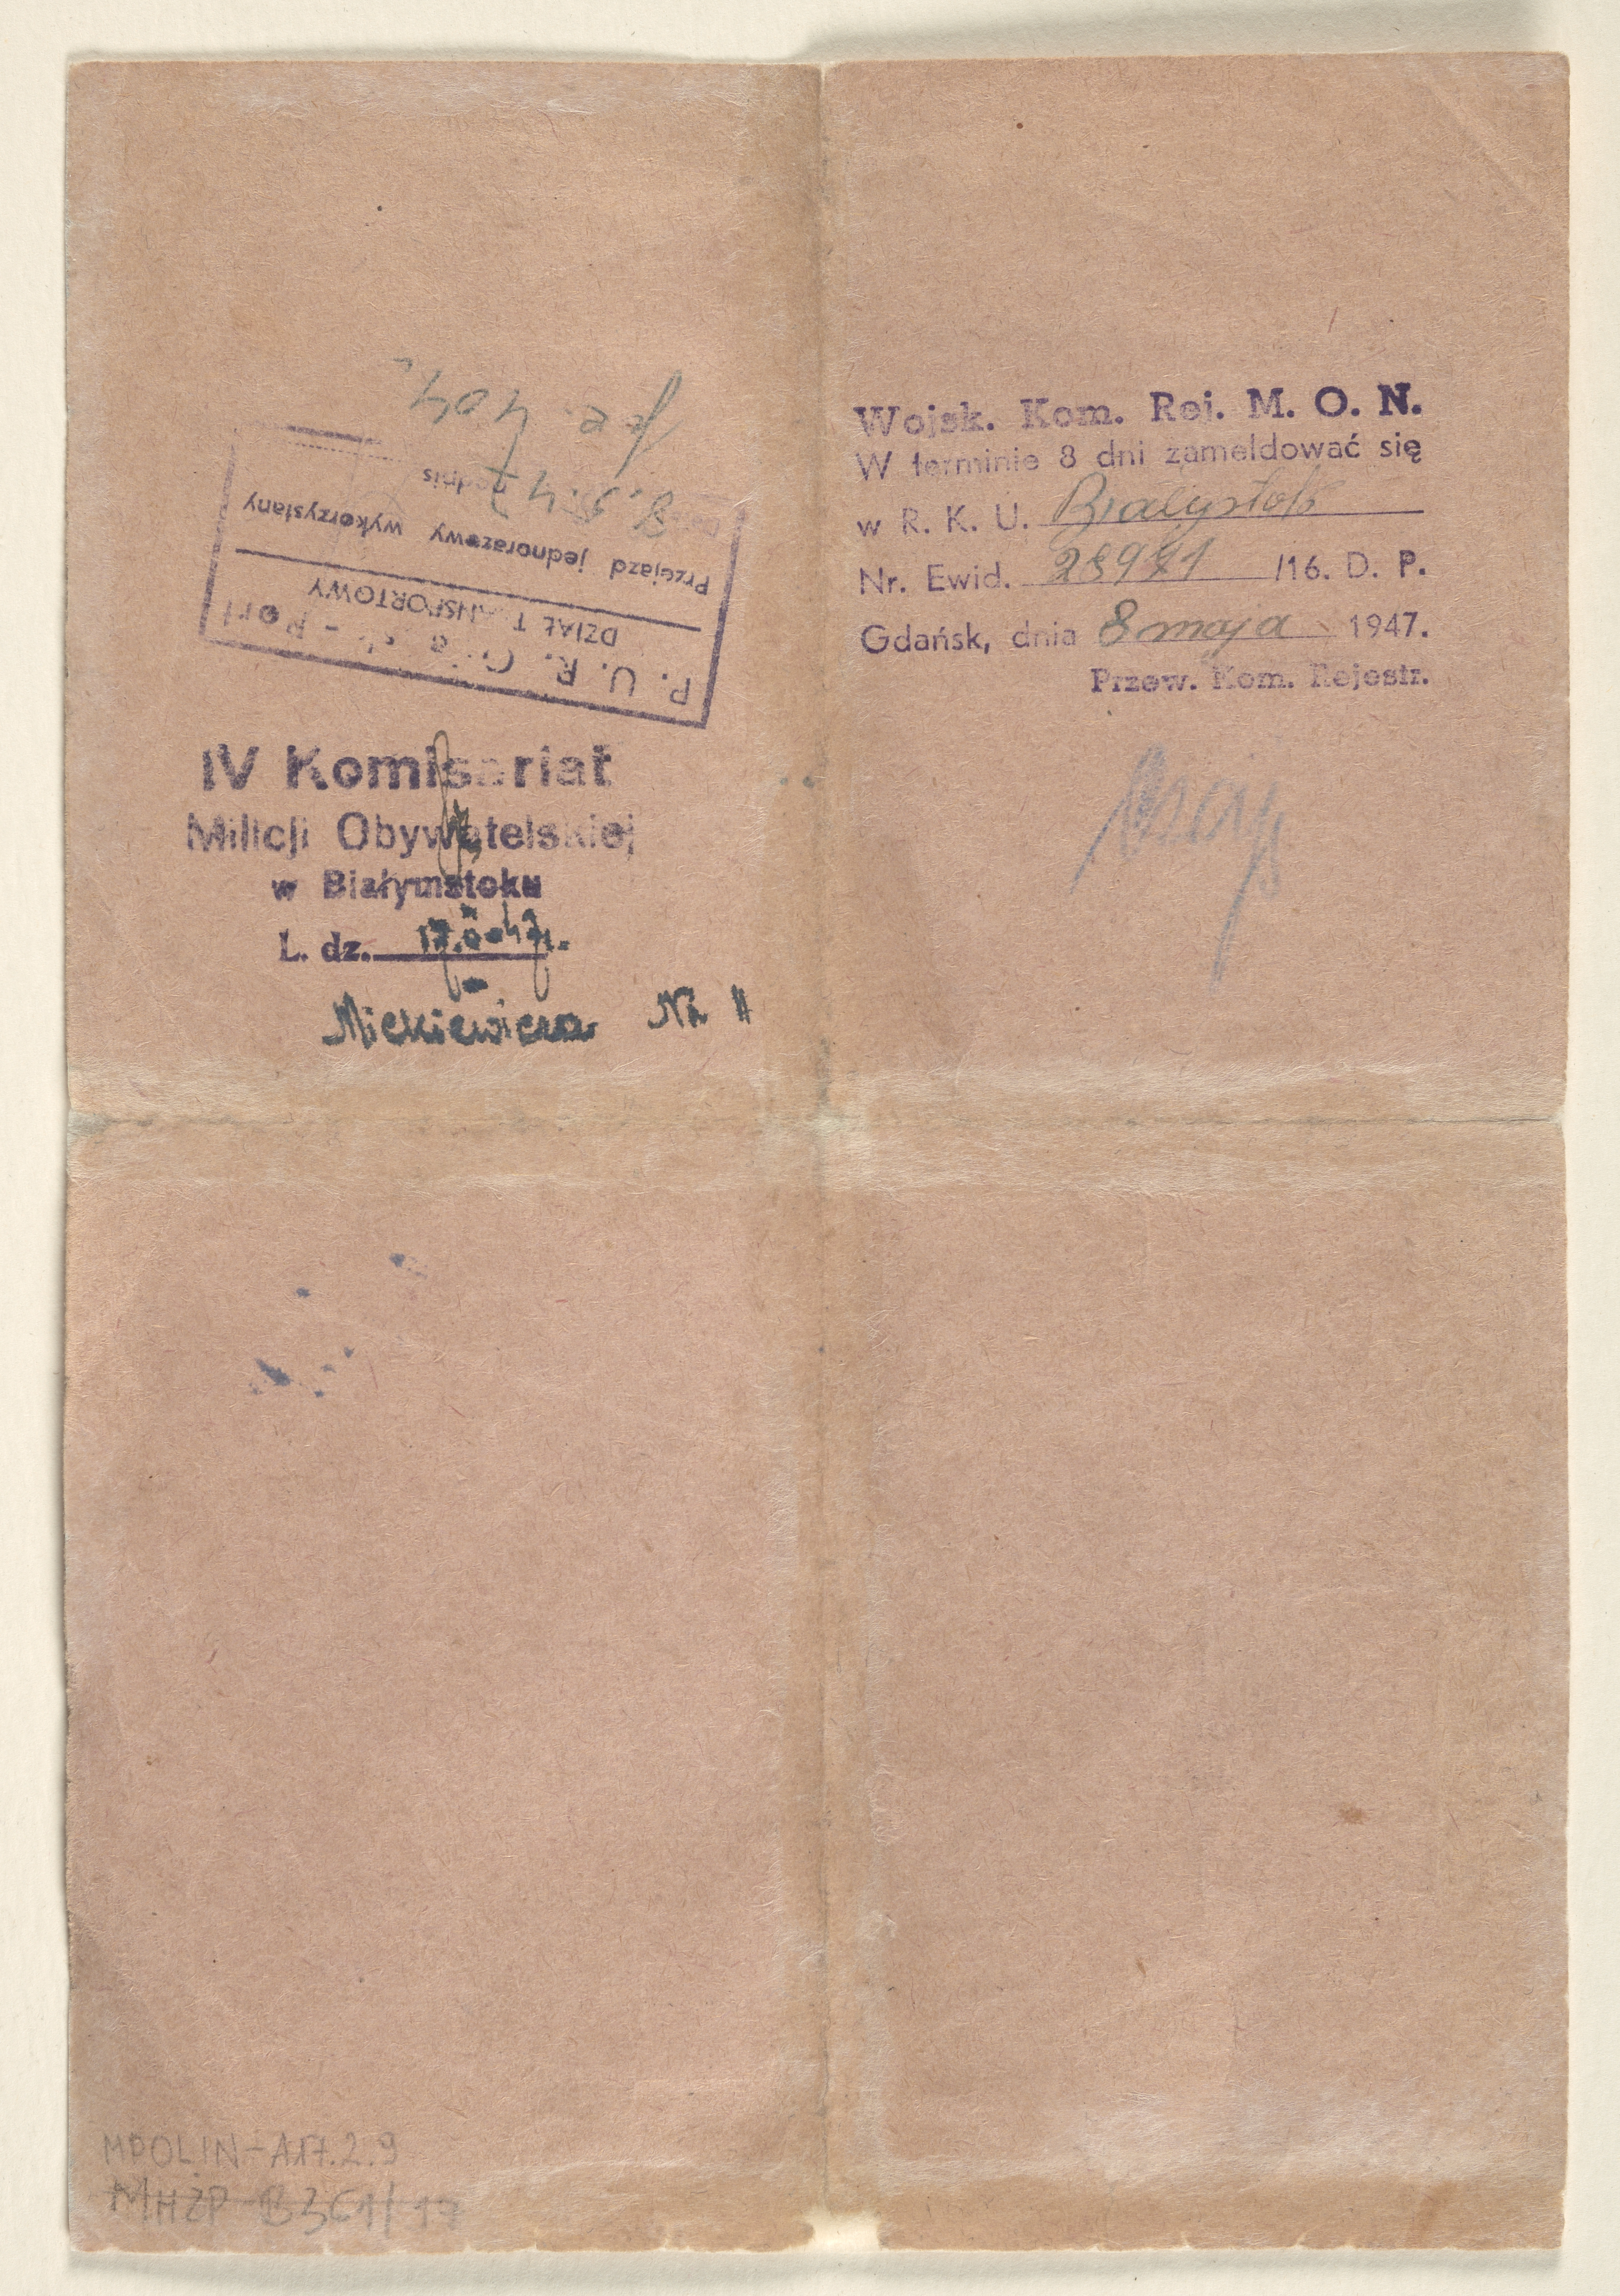 P. U. R. - Port
DZIAŁ
Przejazd jednorazowy wykorzystany
8.5.47
IV Komisariat
Milicji Obywatelskiej
w Białymstoku
L. dz.
Mickiewicza Nr 11
Wojsk. Kom. Rej. M. O. N.
W terminie 8 dni zameldować się
w R. K. U. Białystok
Nr. Ewid. /16. D. P.
Gdańsk, dnia 8 maja 1947.
Przew. Kom. Rejestr.
MPOLIN-A17.2.9
MHŻP-B361/17